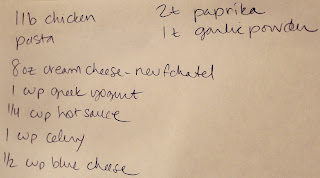 1 lb chicken
pasta
2t paprika
1t garlic powder
8 oz cream cheese - neufchatel
1 cup greek yogurt
1/4 cup hot sauce
1 cup celery
1/2 cup blue cheese